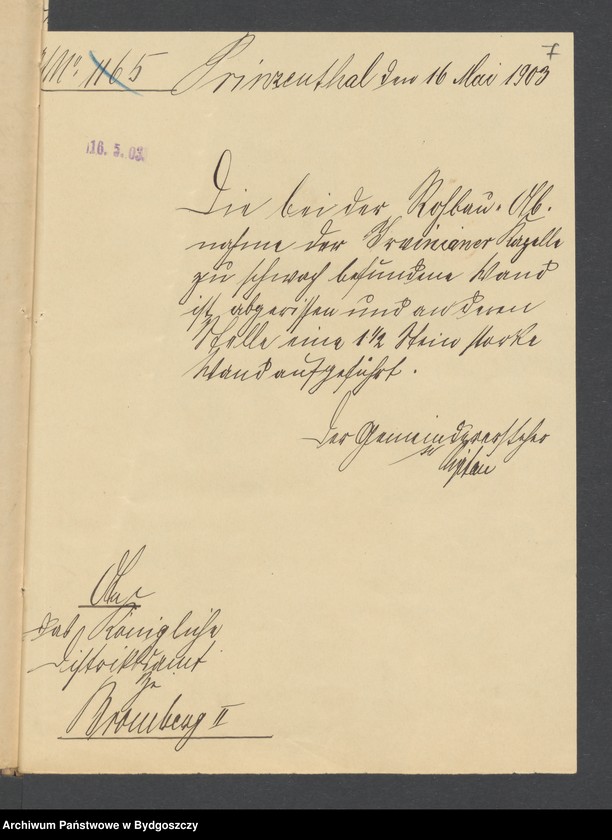 7
№ 1165 Prinzenthal den 16 Mai 1903
16. 5. 03.
Die bei der Rohbau-Ab-
nahme der Kapelle
zu schwach befundene Wand
ist abgerissen und an deren
Stelle eine 1 1/2 Stein starke
Wand aufgeführt.
Der Gemeindevorsteher
An
das Königliche
Distriktsamt
Bromberg II
Archiwum Państwowe w Bydgoszczy